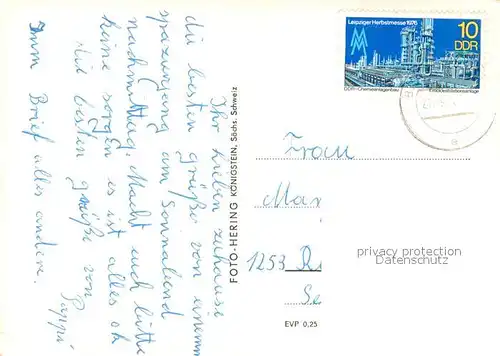 Ihr Lieben zuhause
die besten Grüße von einem
spaziergang am Sonnabend
nachmittag. Macht euch bitte
keine sorgen es ist alles ok
die besten grüße von
Pappi
Im Brief alles andere.
FOTO-HERING KÖNIGSTEIN, Sächs. Schweiz
Leipziger Herbstmesse 1976
10
DDR
DDR-Chemieanlagenbau
Frau
Mar
1253 R
Se
privacy protection
Datenschutz
EVP 0,25